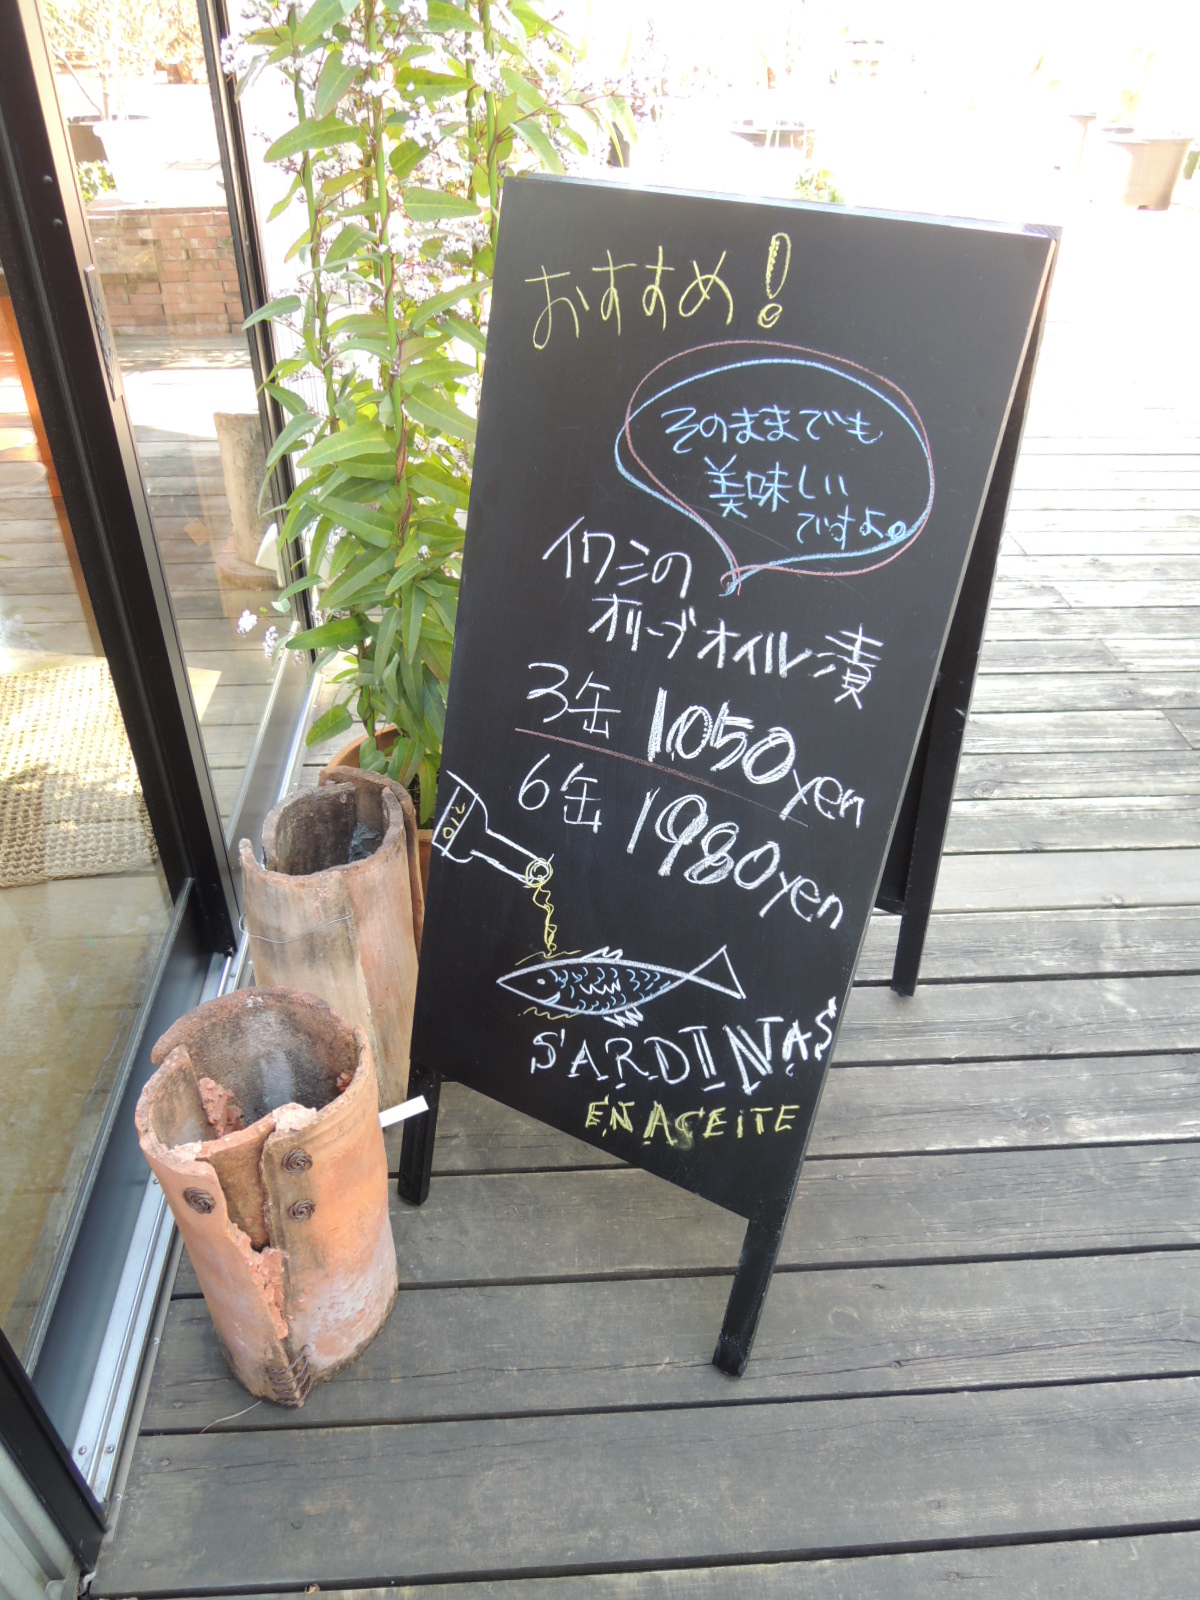 おすすめ!
そのままでも
美味しい
ですよ。
イワシの
オリーブオイル漬
3缶 1050yen
6缶 1980yen
OIL
SARDINAS
EN ACEiTE